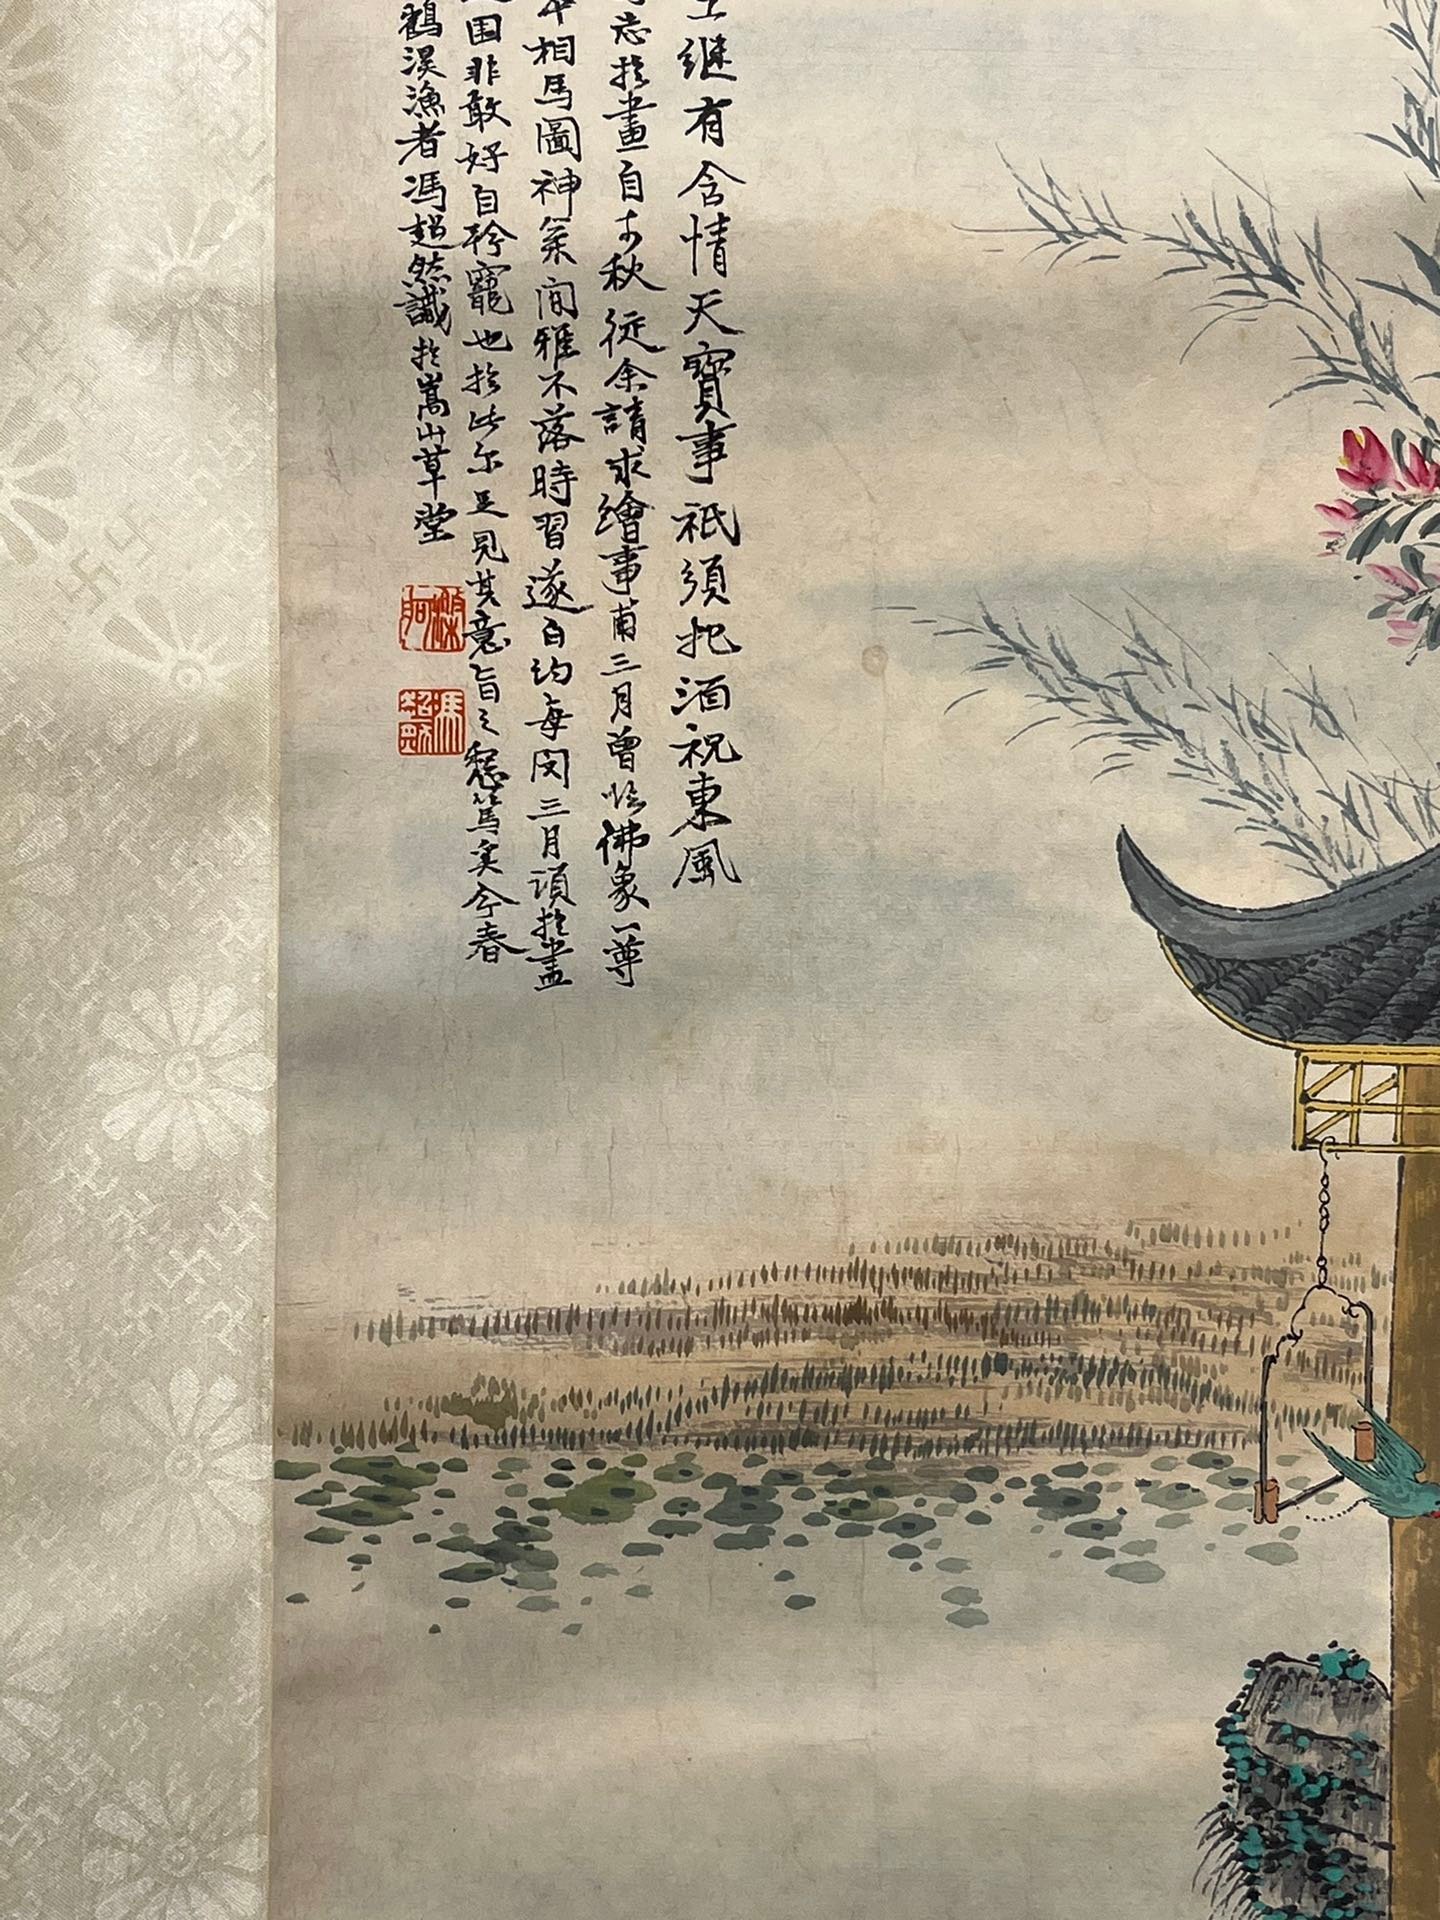 继有含情天寶事祇須把酒祝東風
忘於畫自今秋從余請求繪事前三月曾臨佛象一尊
相馬圖神氣閒雅不落時習遂自約每閱三月須於畫
圖非敢好自矜寵也於此尔足見其意旨之懇篤矣今春
鶴溪漁者馮超然識於嵩山草堂
馮超然